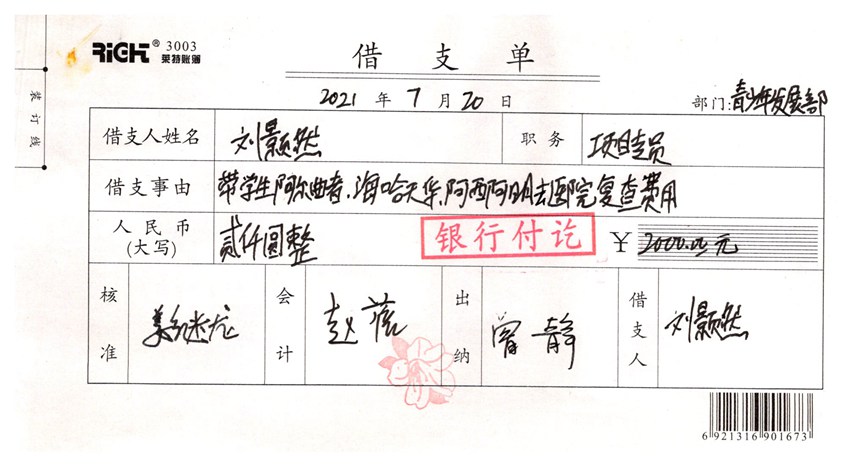 RiGHT® 3003
莱特账簿
借支单
2021 年 7 月 20 日
部门:青少年发展部
装订线
借支人姓名 刘颢然 职务 项目专员
借支事由 带学生阿尔曲者、海哈天华、阿西阿明去医院复查费用
人民币(大写) 贰仟圆整 银行付讫 ¥ 2000.00 元
核准 会计 赵蓓 出纳 曾静 借支人 刘颢然
6 921316 901673